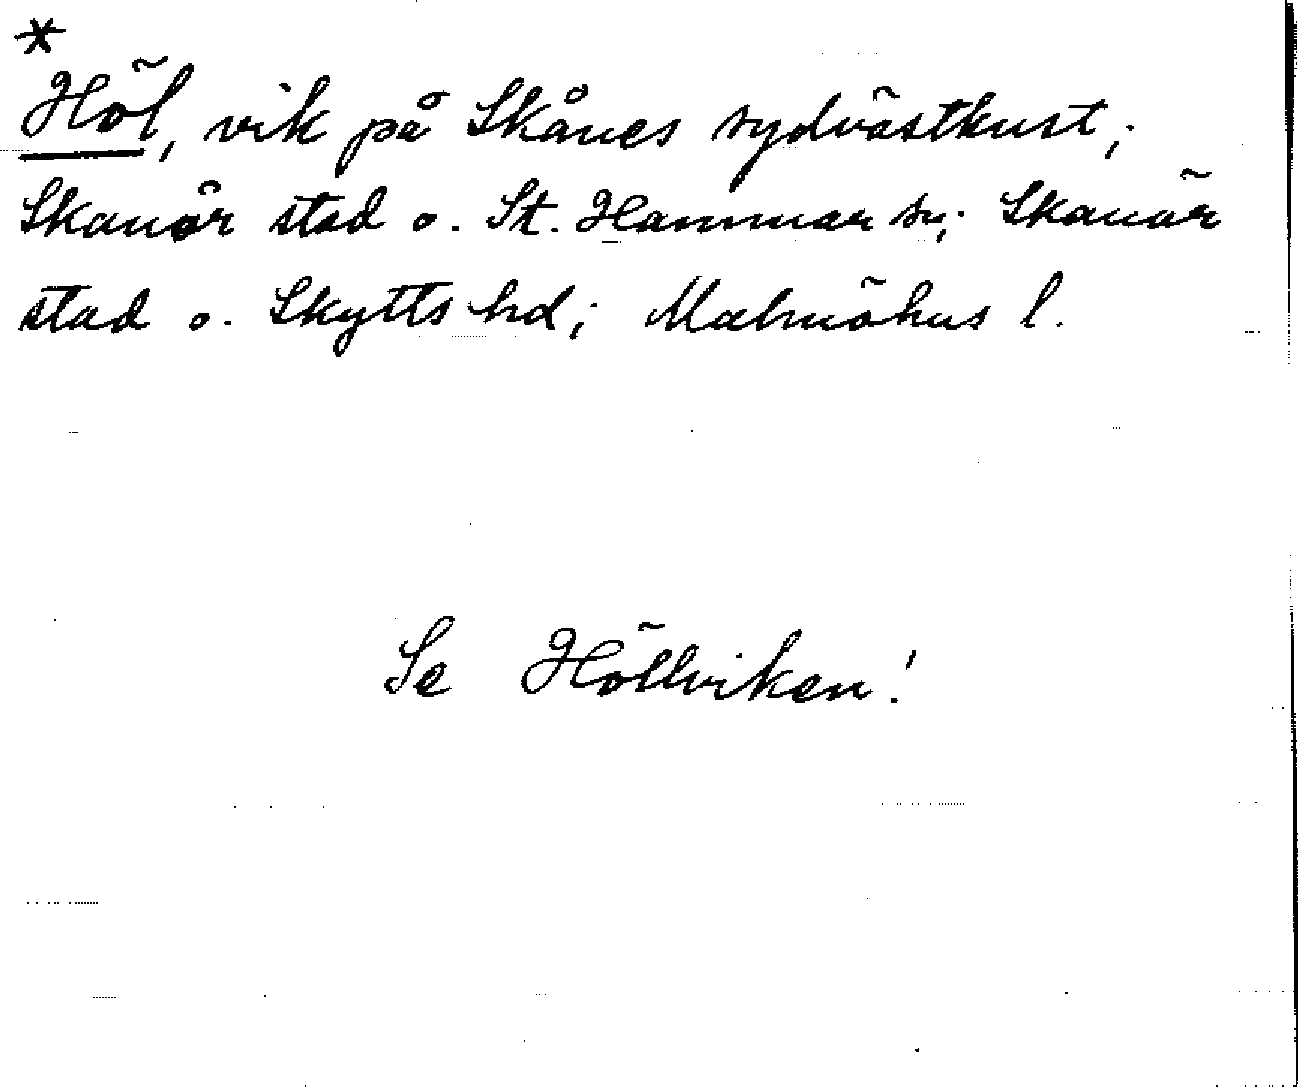 *
Höl, vik på Skånes sydvästkust;
Skanör stad o. St. Hammar sn; Skanör
stad o. Skytts hd; Malmöhus l.
Se Höllviken!